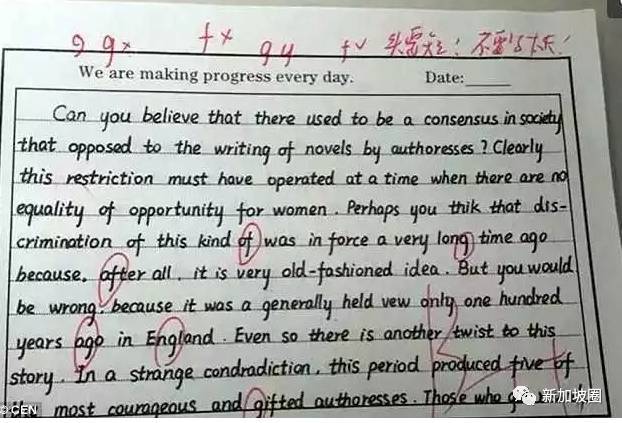 g g× f× g y f✓ 头需短！不要太长！
We are making progress every day. Date:
Can you believe that there used to be a consensus in society
that opposed to the writing of novels by authoresses ? Clearly
this restriction must have operated at a time when there are no
equality of opportunity for women . Perhaps you thik that dis-
crimination of this kind of was in force a very long time ago
because. after all . it is very old-fashioned idea . But you would
be wrong. because it was a generally held vew only one hundred
years ago in England . Even so there is another twist to this
story . In a strange condradiction , this period produced five of
the most courageous and gifted authoresses . Those who
©CEN
新加坡圈